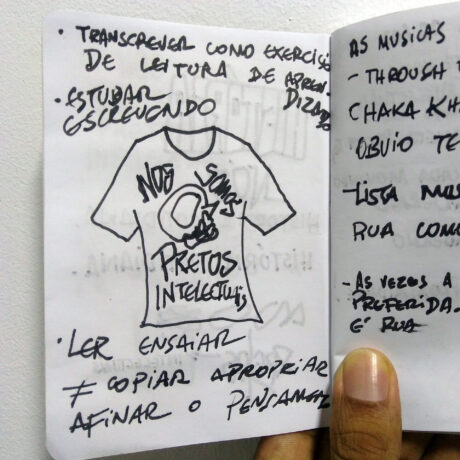 • TRANSCREVER COMO EXERCÍSIO
DE LEITURA DE APREN
DIZADO
• ESTUDAR
ESCREVENDO
NOS SOMOS
PRETOS
INTELECTUAIS
• LER ENSAIAR
≠ COPIAR APROPRIAR
AFINAR O
AS MUSICAS
- THROUGH
CHAKA KH
OBVIO TE
- LISTA
RUA COM
- AS VEZES A
PREFERIDA.
É RUA